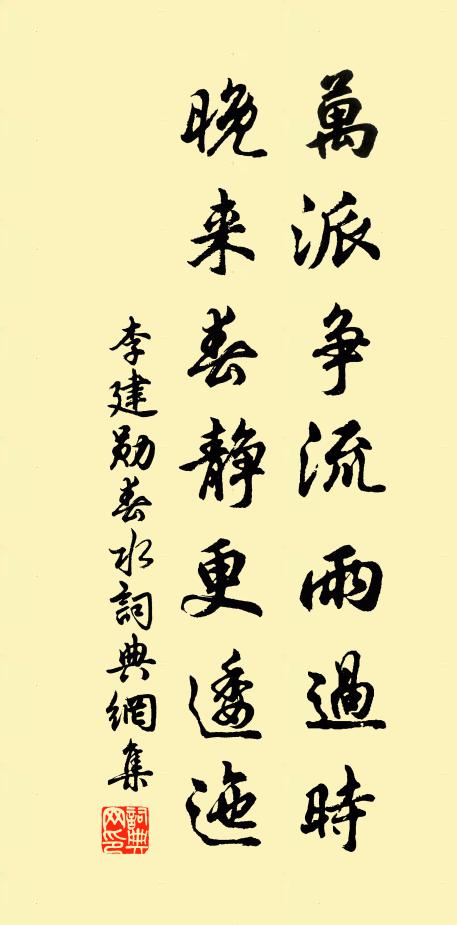 萬派争流雨過時
晚来春靜更逶迤
李建勛春水詞典網集
詞典網印